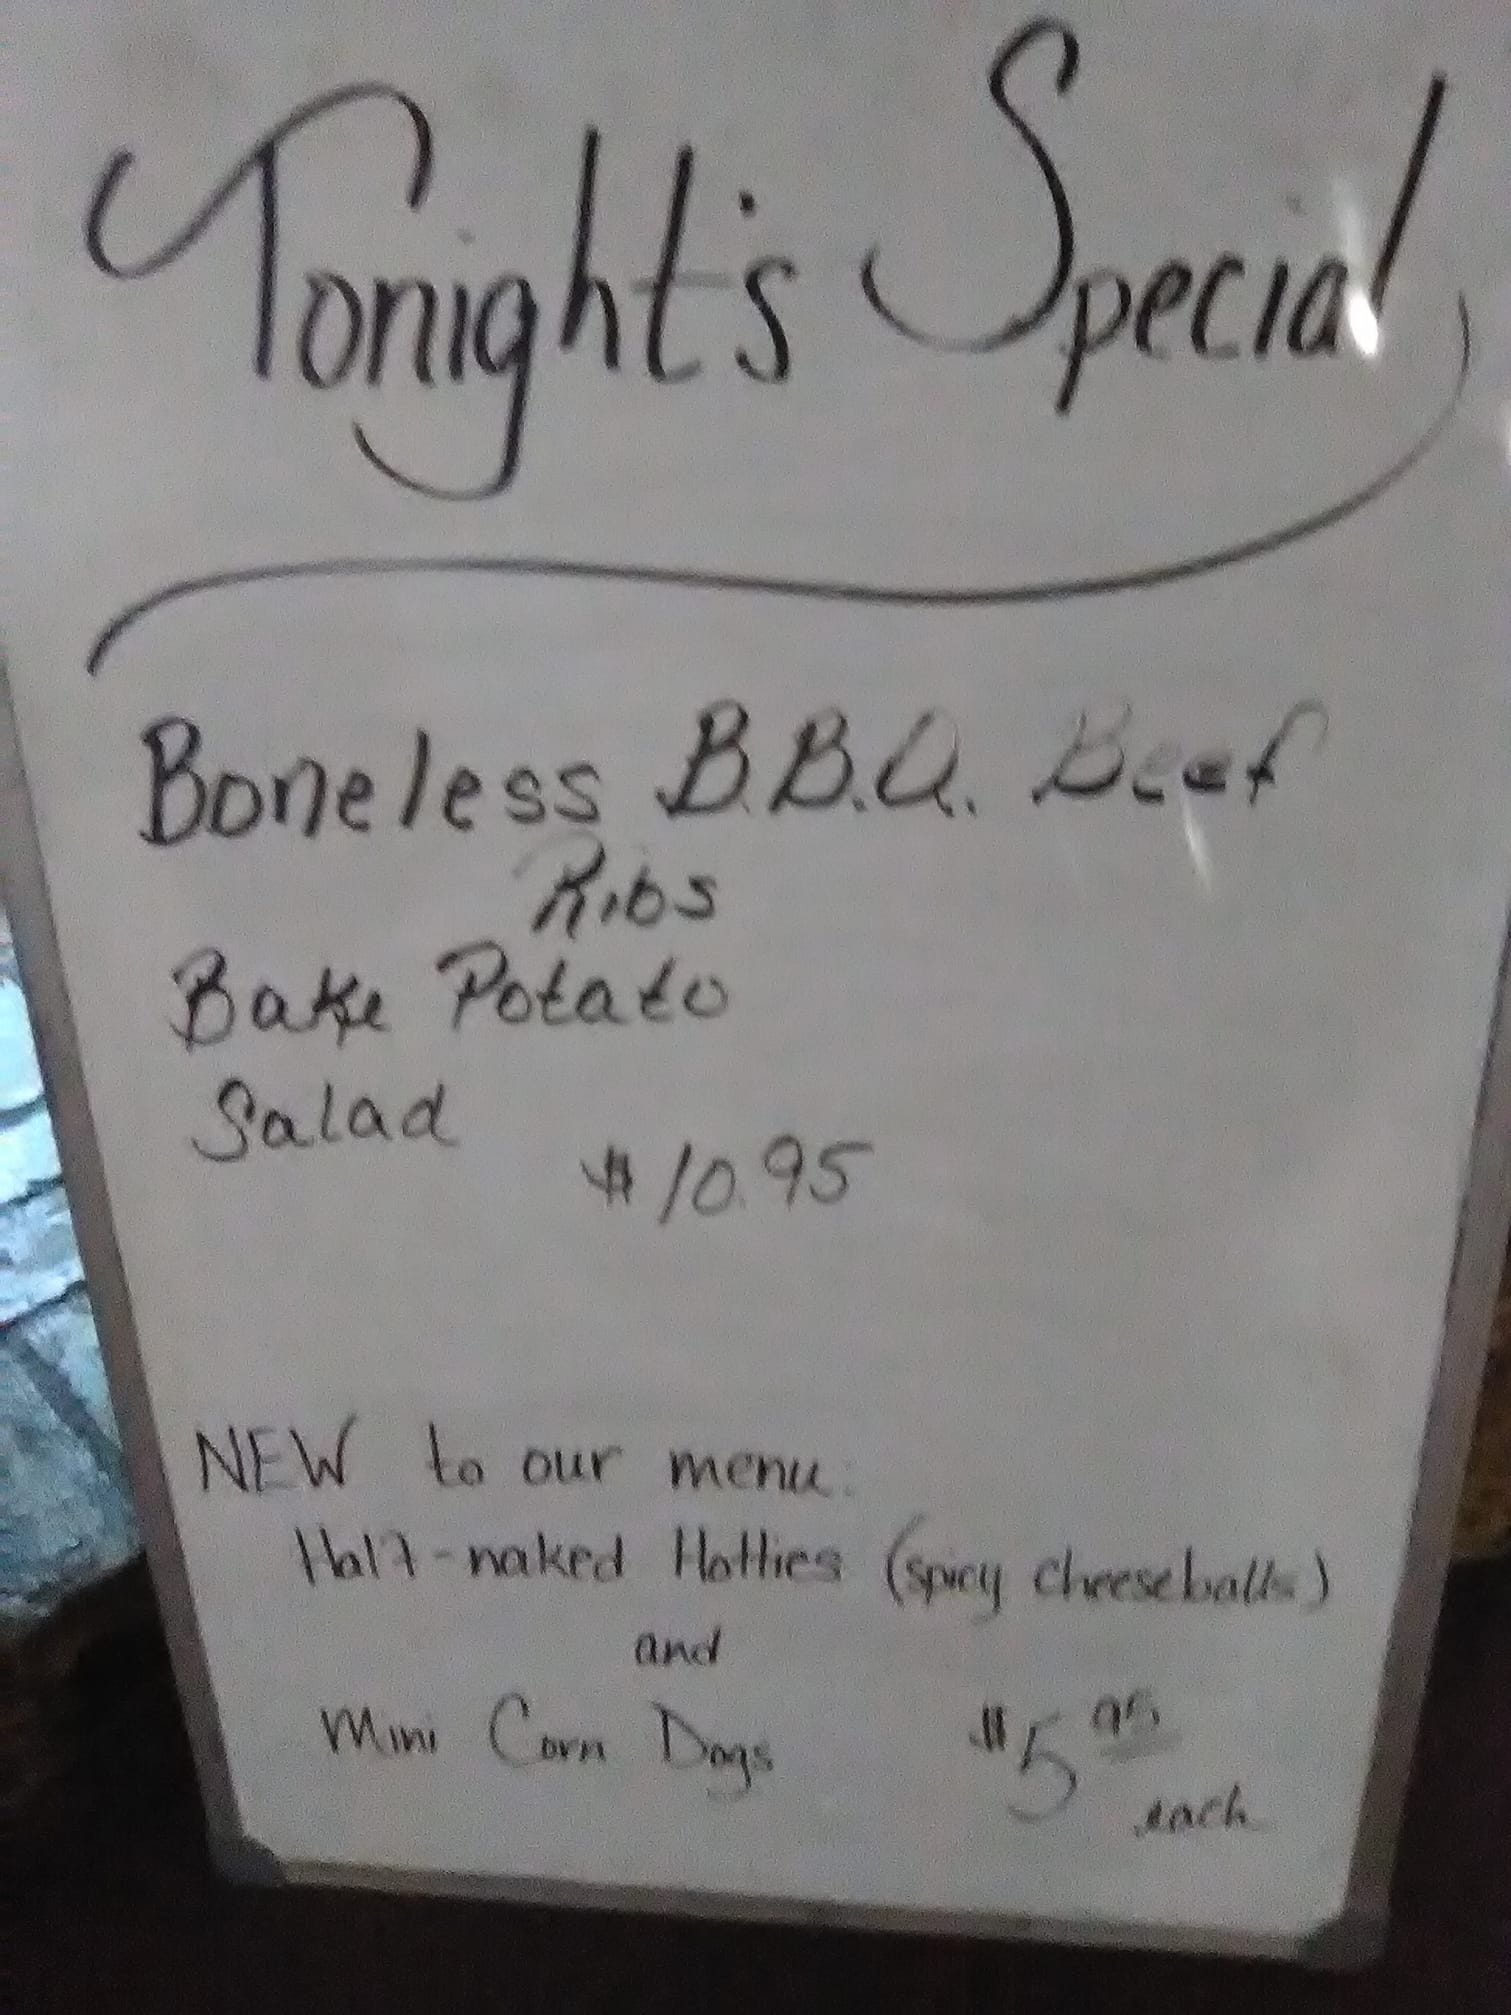 Tonight's Special
Boneless B.B.Q. Beef
Ribs
Bake Potato
Salad
$10.95
NEW to our menu:
Half-naked Hotties (spicy cheeseballs)
and
Mini Corn Dogs $5.95
each